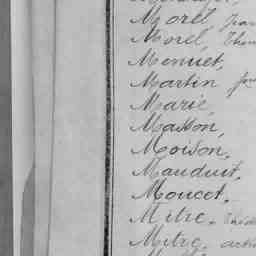 Morel, Jean
Morel, Thom
Menuet,
Martin Jos
Marie,
Masson,
Moison,
Mauduit,
Moucet,
Mitre,
Mitre,